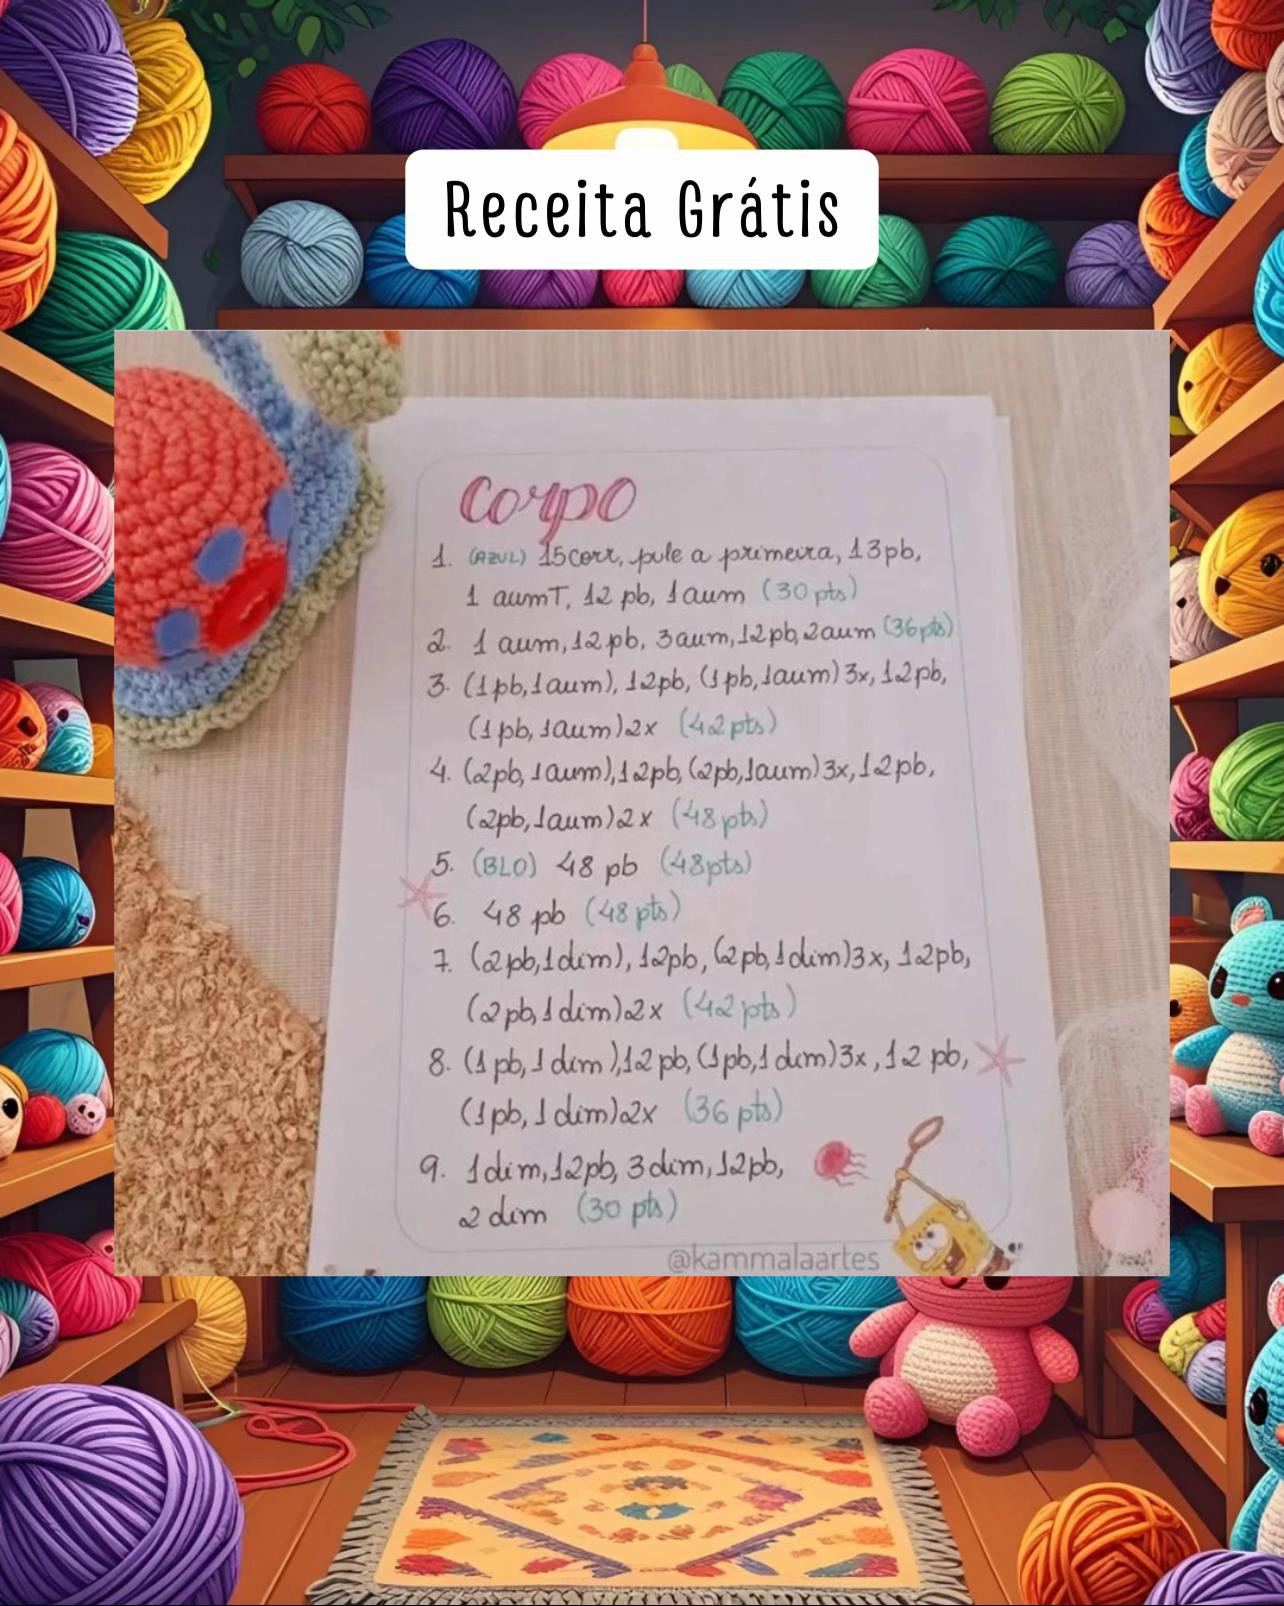 Receita Grátis
Corpo
1. (AZUL) 15corr, pule a primeira, 13pb,
1 aumT, 12 pb, 1aum (30 pts)
2. 1 aum, 12pb, 3aum, 12pb, 2aum (36pts)
3. (1pb, 1aum), 12pb, (1pb, 1aum)3x, 12pb,
(1pb, 1aum)2x (42pts)
4. (2pb, 1aum), 12pb, (2pb, 1aum)3x, 12pb,
(2pb, 1aum)2x (48pts)
5. (BLO) 48 pb (48pts)
6. 48 pb (48 pts)
7. (2pb, 1dim), 12pb, (2pb, 1dim)3x, 12pb,
(2pb, 1dim)2x (42 pts)
8. (1pb, 1dim), 12pb, (1pb, 1dim)3x, 12 pb,
(1pb, 1dim)2x (36 pts)
9. 1dim, 12pb, 3dim, 12pb,
2 dim (30 pts)
@kammalaartes